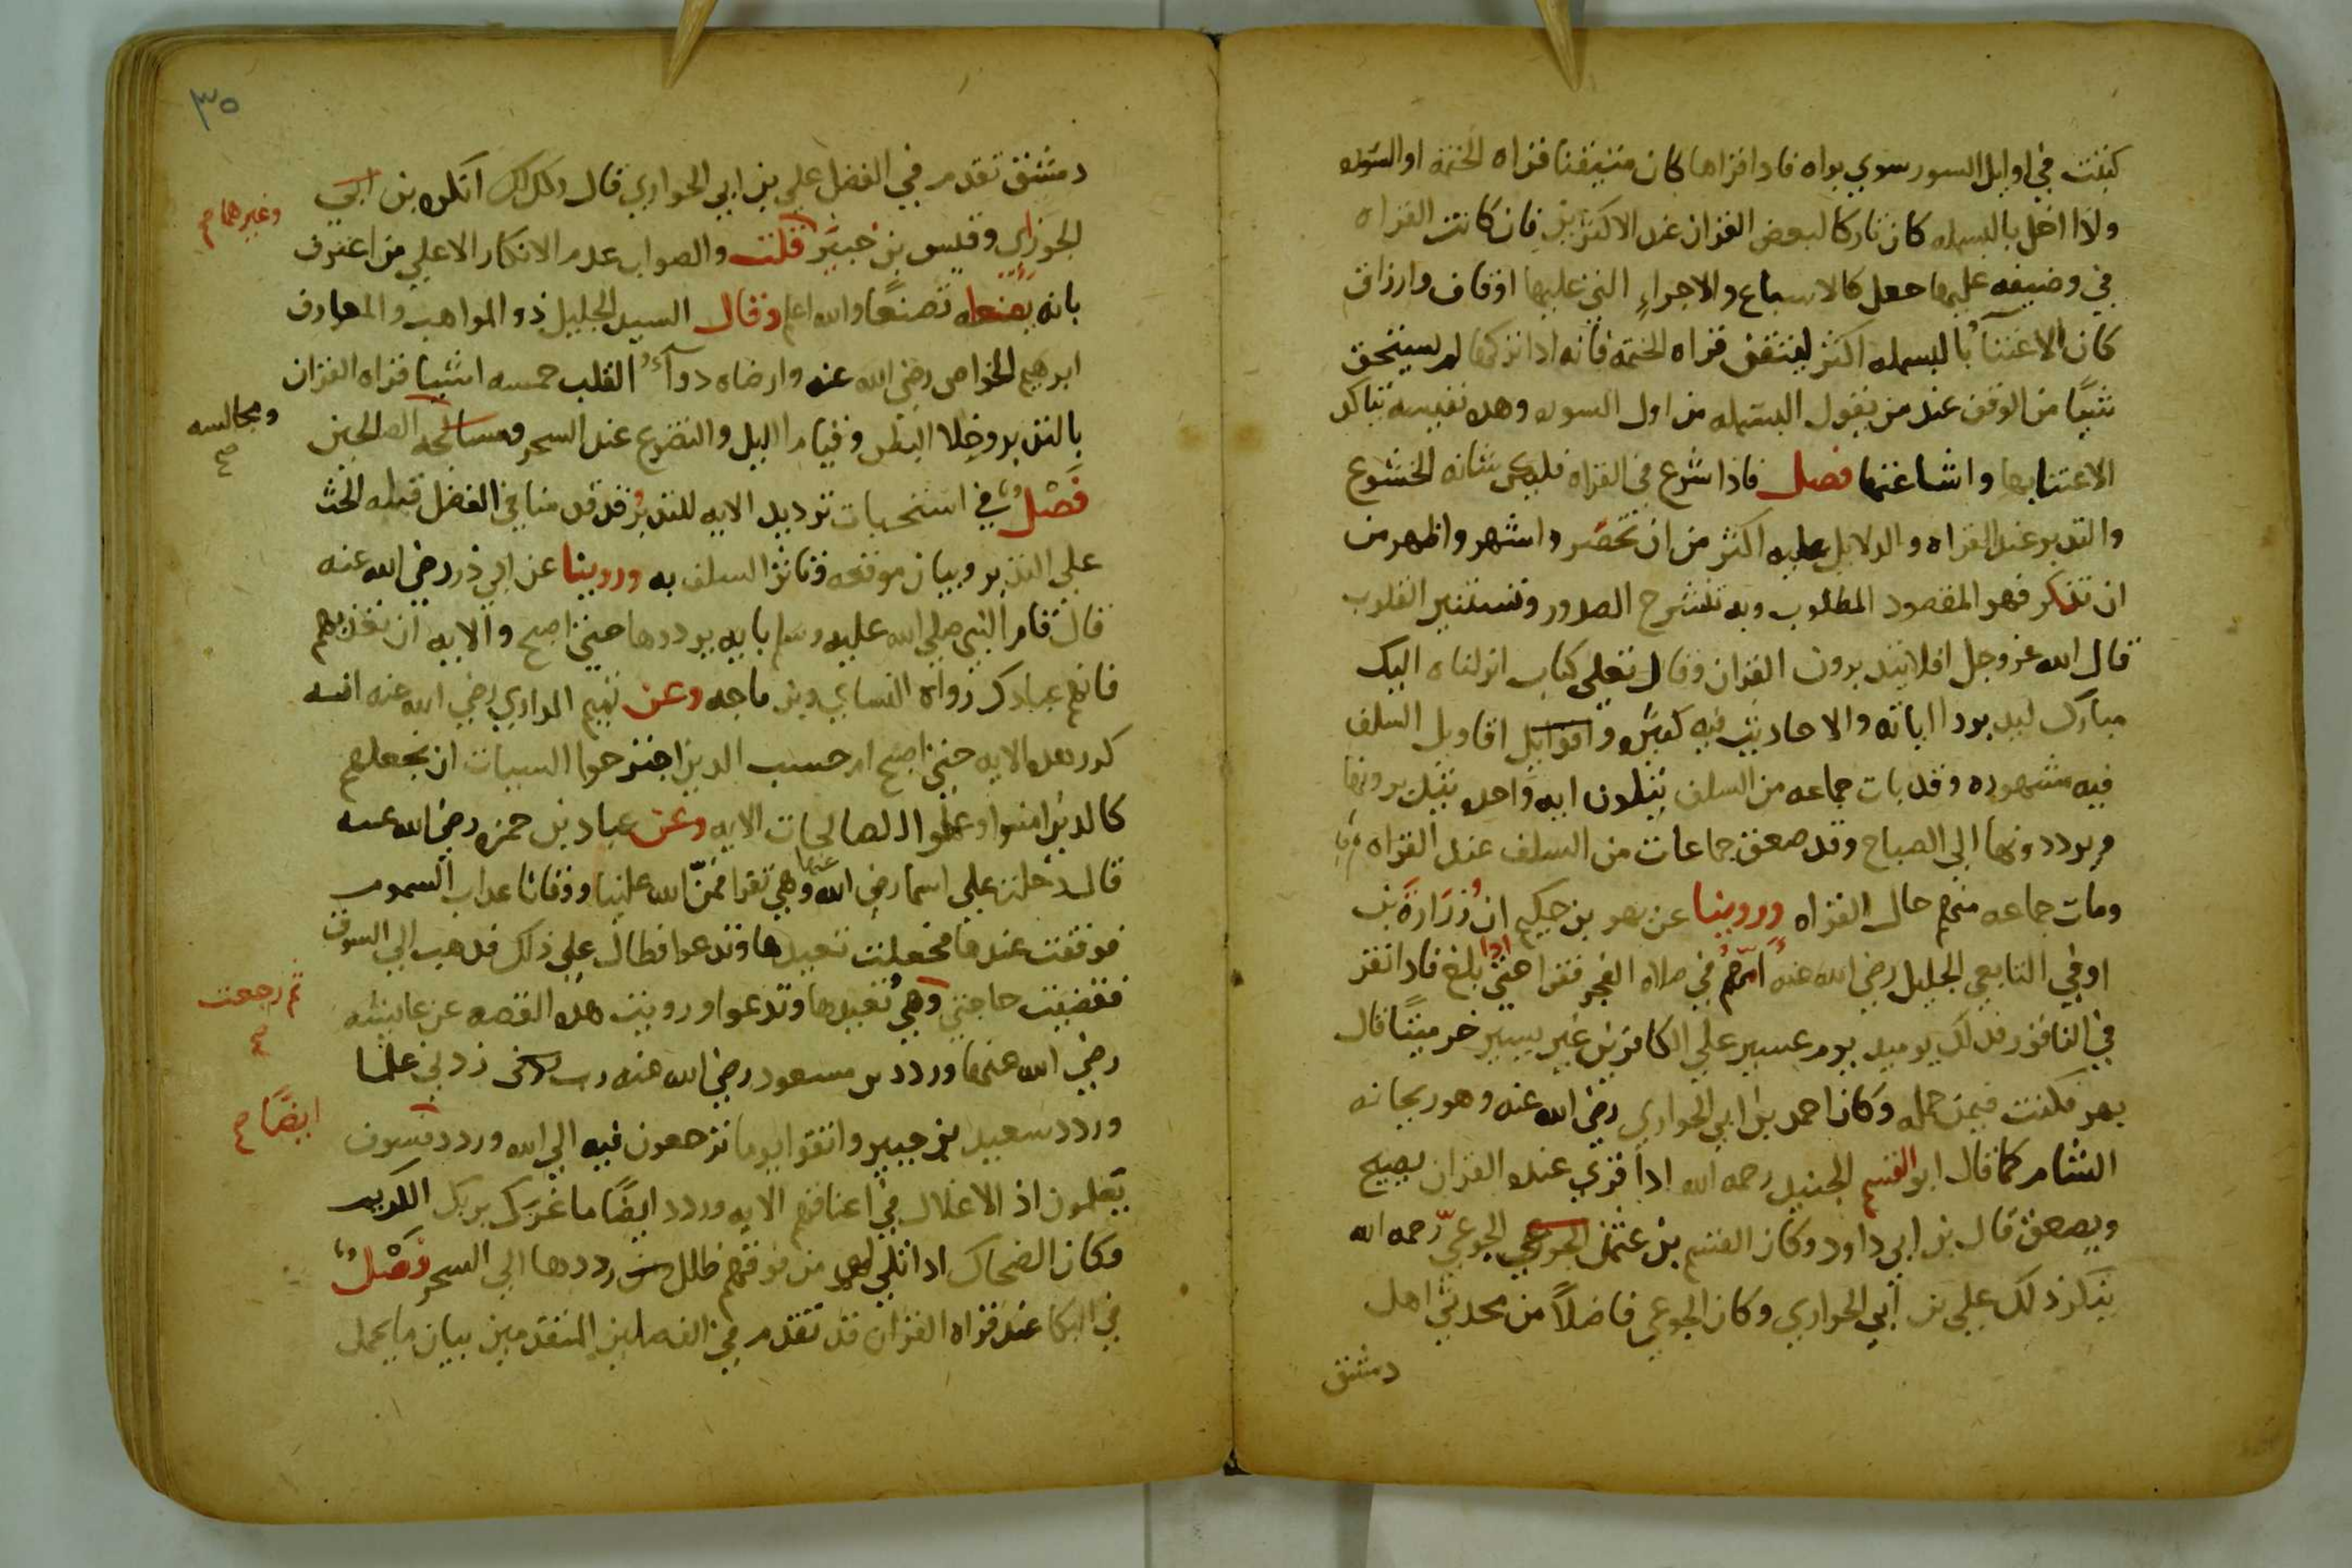 كتبت في اوايل السور سوي براه فادا قراها كان متيقنا قراه الختمه او السوره
ولاا اخل بالبسمله كان تاركا لبعض القران عند الاكثرين فان كانت القراه
في وضيفه عليها جعل كالاسباع والاجراء التي عليها اوقاف وارزاق
كان الاعتنآ بالبسمله اكثر ليتقن قراه الختمه فانه ادا تركها لم يستحق
شيًا من الوقف عند من يقول البسمله من اول السوره وهده نفيسه يتاكد
الاعتنا بها واشاعتها فصل فاذا شرع في القراه فليكن شانه الخشوع
والتدبر عند القراه والدلايل عليه اكثر من ان تحصَر واشهر واظهر من
ان تذكر فهو المقصود المطلوب وبه تنشرح الصدور وتستنير القلوب
قال الله عز وجل افلا يتدبرون القران وقال تعلي كتاب انزلناه اليك
مبارك ليدبروا اياته والاحاديث فيه كثيره واقوايل اقاويل السلف
فيه مشهوره وقد بات جماعه من السلف يتلون ايه واحده يتدبرونها
ويرددونها الي الصباح وقد صعق جماعات من السلف عند القراه
ومات جماعه منهم حال القراه وروينا عن بهر بن حكيم ان زرَارَة بن
اوفي التابعي الجليل رضي الله عنه امّهم في صلاه الفجر فقرا حتي ادا بلغ فادا نقر
في الناقور فدلك يوميد يوم عسير علي الكافرين غير يسير خر ميتًا قال
بهر فكنت فيمن حمله وكان احمد بن ابي الحواري رضي الله عنه وهو ريحانه
الشام كما قال ابو القسم الجنيد رحمه الله ادا قري عنده القران يصيح
ويصعق قال بن ابي داود وكان القسم بن عثمن الجوعي الجوعيّ رحمه الله
ينكر ذلك علي بن ابي الحواري وكان الجوعي فاضلاً من محدثي اهل
دمشق
٣٥
دمشق تقدم في الفضل علي بن ابي الحواري قال وكدلك انكره بن ابي
الجوزاي وقيس بن جبير قلت والصواب عدم الانكار الا علي من اعترف
وغيرهما صح
بانه يصنعه تصنعًا والله اعلم وقال السيد الجليل ذو المواهب والمعارف
ابرهيم الخواص رضي الله عنه وارضاه دوآء القلب خمسه اشيا قراه القران
بالتدبر وخلا البطن وقيام الليل والتضرع عند السحر الصالحين
ومجالسه صح
فَصْلٌ في استحباب ترديد الايه للتدبر قد قدمنا في الفضل قبله الحث
علي التدبر وبيان موقعه وتاثر السلف به وروينا عن ابي ذر رضي الله عنه
قال قام النبي صلي الله عليه وسلم بايه يرددها حتي اصبح والايه ان تعذبهم
فانهم عبادك رواه النساي وبن ماجه وعن تميم الداري رضي الله عنه انه
كرر هده الايه حتي اصبح ام حسب الدين اجترحوا السيات ان نجعلهم
كالدين امنوا وعملوا الصالحات الايه وعن عباد بن حمزه رضي الله عنه
قال دخلت علي اسما رضي الله عنها وهي تقرا فمنّ الله علينا ووقانا عداب السموم
فوقفت عندها فجعلت تعيدها وتدعوا فطال علي ذلك فدهبت الي السوق
فقضيت حاجتي وهي تعيدها وتدعوا ورويت هده القصه عن عايشه
ثم رجعت صح
رضي الله عنها وردد بن مسعود رضي الله عنه رب زدني علما
وردد سعيد بن جبير واتقوا يوما ترجعون فيه الي الله وردد فسوف
ايضًا صح
يعلمون اذ الاغلال في اعناقهم الايه وردد ايضًا ما غرك بربك الكريم
وكان الضحاك ادا تلي لهم من فوقهم ظلل رددها الي السحر فَصْلٌ
في البكا عند قراه القران قد تقدم في الفصلين المتقدمين بيان ما يحمل